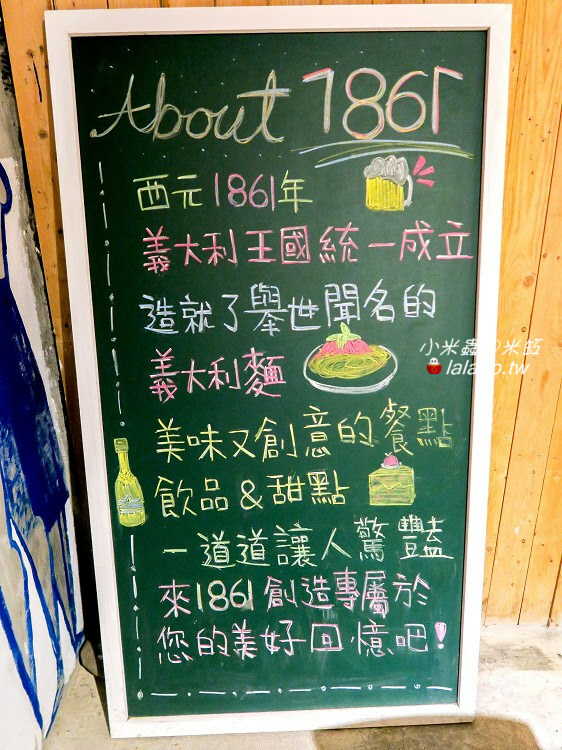 About 1861
西元1861年
義大利王國統一成立
造就了舉世聞名的
義大利麵
小米蟲の米缸
lalabo.tw
美味又創意的餐點
飲品&甜點
一道道讓人驚豔
來1861創造專屬於
您的美好回憶吧!